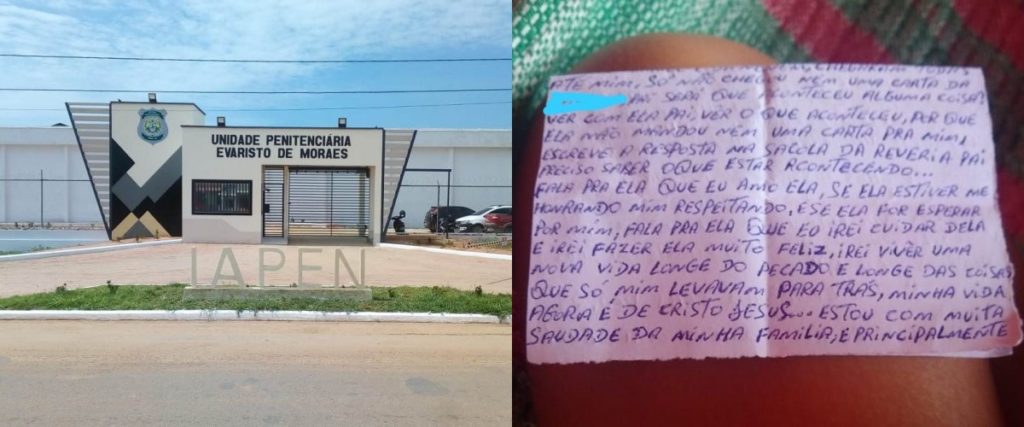 UNIDADE PENITENCIÁRIA
EVARISTO DE MORAES
IAPEN
ATE MIM, SÓ NÃO CHEGOU NEM UMA CARTA DA
PAI SERÁ QUE ACONTECEU ALGUMA COISA?
VER COM ELA PAI, VER O QUE ACONTECEU, POR QUE
ELA NÃO MANDOU NEM UMA CARTA PRA MIM,
ESCREVE A RESPOSTA NA SACOLA DA REVERIA PAI
PRECISO SABER OQUE ESTAR ACONTECENDO...
FALA PRA ELA QUE EU AMO ELA, SE ELA ESTIVER ME
HONRANDO MIM RESPEITANDO, E SE ELA FOR ESPERAR
POR MIM, FALA PRA ELA QUE EU IREI CUIDAR DELA
E IREI FAZER ELA MUITO FELIZ, IREI VIVER UMA
NOVA VIDA LONGE DO PECADO E LONGE DAS COISAS
QUE SÓ MIM LEVAVAM PARA TRÁS, MINHA VIDA
AGORA É DE CRISTO JESUS... ESTOU COM MUITA
SAUDADE DA MINHA FAMILIA, E PRINCIPALMENTE